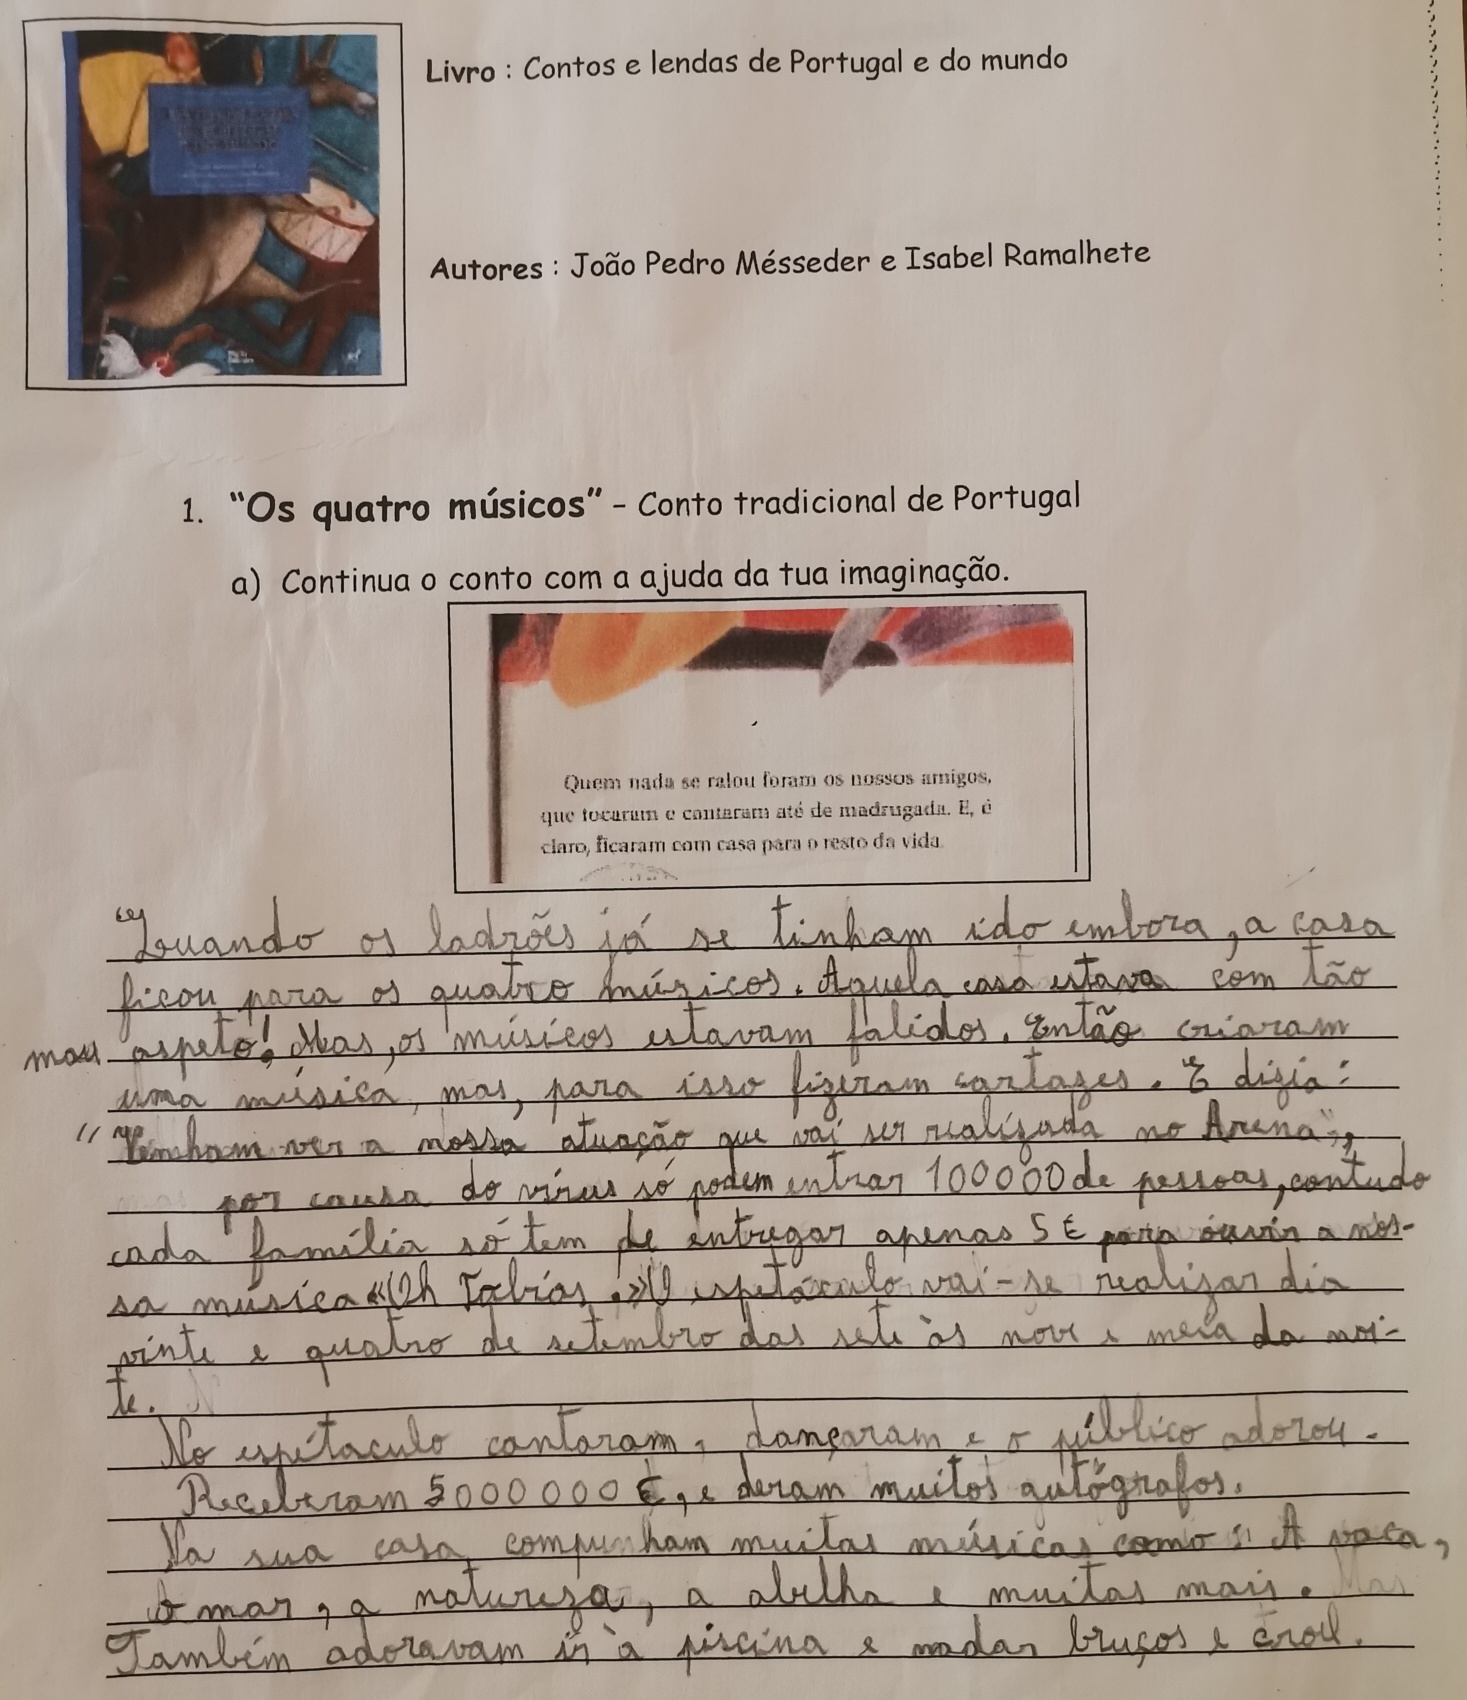 Livro : Contos e lendas de Portugal e do mundo
Autores : João Pedro Mésseder e Isabel Ramalhete
1. "Os quatro músicos" - Conto tradicional de Portugal
a) Continua o conto com a ajuda da tua imaginação.
Quem nada se ralou foram os nossos amigos,
que tocaram e cantaram até de madrugada. E, é
claro, ficaram com casa para o resto da vida.
Quando os ladrões já se tinham ido embora, a casa
ficou para os quatro músicos. Aquela casa estava com tão
mau aspeto! Mas, os músicos estavam falidos. Então criaram
uma música, mas, para isso fizeram cartazes. E dizia:
"Venham ver a nossa atuação que vai ser realizada no Arena",
por causa do vírus só podem entrar 100000 de pessoas, contudo
cada família só tem de entregar apenas 5 € para ouvir a nos-
sa música «Oh Tobias.» O espetáculo vai-se realizar dia
vinte e quatro de setembro das sete às nove e meia da noi-
te.
No espétaculo cantaram, dançaram e o público adorou.
Receberam 5000000 €, e deram muitos autógrafos.
Na sua casa compunham muitas músicas como: A vaca,
o mar, a natureza, a abelha e muitas mais.
Também adoravam ir à piscina e nadar bruços e crol.